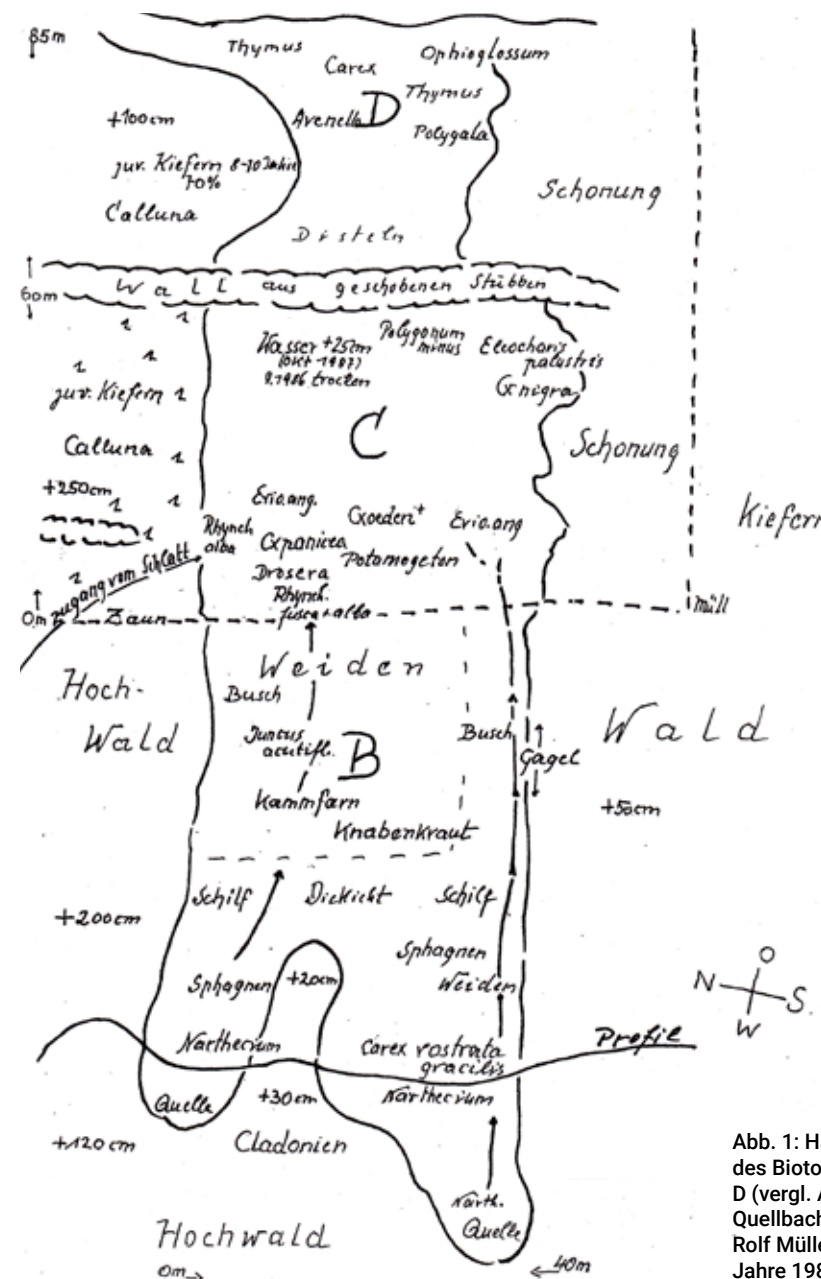 85m
Thymus
Carex
Ophioglossum
Thymus
+100cm
Avenella D
Polygala
juv. Kiefern 8-10 Jahre
70%
Calluna
Schonung
Disteln
60m
Wall aus geschobenen Stübben
Wasser +25cm
(Okt 1987)
9.1986 trocken
Polygonum
minus
Eleocharis
palustris
C. nigra
juv. Kiefern
C
Calluna
Schonung
+250cm
Kiefern
Erio.ang.
Rhynch
alba
C. oederi+
Erio.ang
C. panicea
Potamogeton
Drosera
Rhynch.
fusca+alba
zugang vom Schlatt
0m
Zaun
Müll
Weiden
Hoch-
Wald
Busch
Juncus
acutifl.
B
Busch
Gagel
Wald
Kammfarn
+50cm
Knabenkraut
Schilf
Dickicht
Schilf
+200cm
Sphagnen
Sphagnen
+20cm
Weiden
N
O
S
W
Narthecium
Carex rostrata
gracilis
Profil
Quelle
+30cm
Narthecium
+120cm
Cladonien
Narth.
Quelle
Hochwald
0m
40m
Abb. 1: H
des Bioto
D (vergl. A
Quellbach
Rolf Mülle
Jahre 198